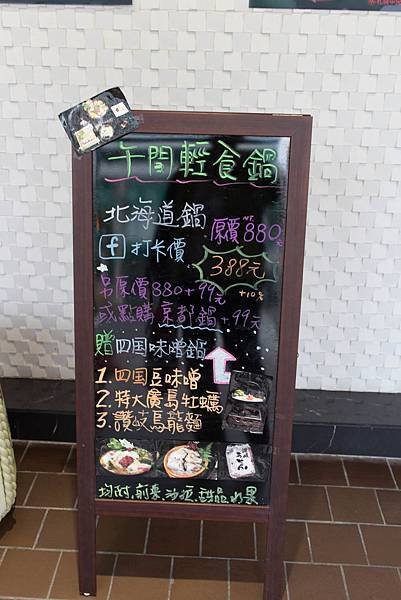 午間輕食鍋
北海道鍋 原價NT.880元
f 打卡價 388元
+10%
另原價880+99元
或點購京都鍋+99元
贈四国味噌鍋
1.四国豆味噌
2.特大廣島牡蠣
3.讚岐烏龍麵
均附.前菜.沙拉.甜品.水果